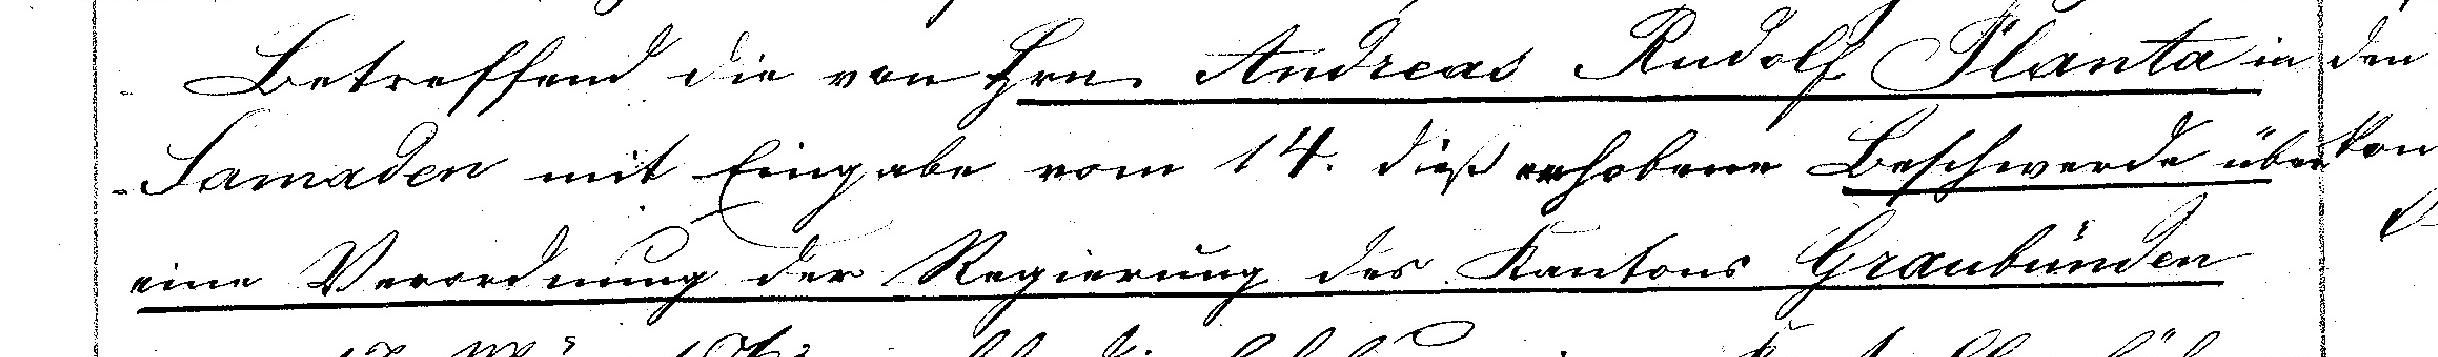 Betreffend die von Hrn. Andreas Rudolf Planta in den
Samaden mit Eingabe vom 14. dieß erhobene Beschwerde über von
eine Verordnung der Regierung des Kantons Graubünden